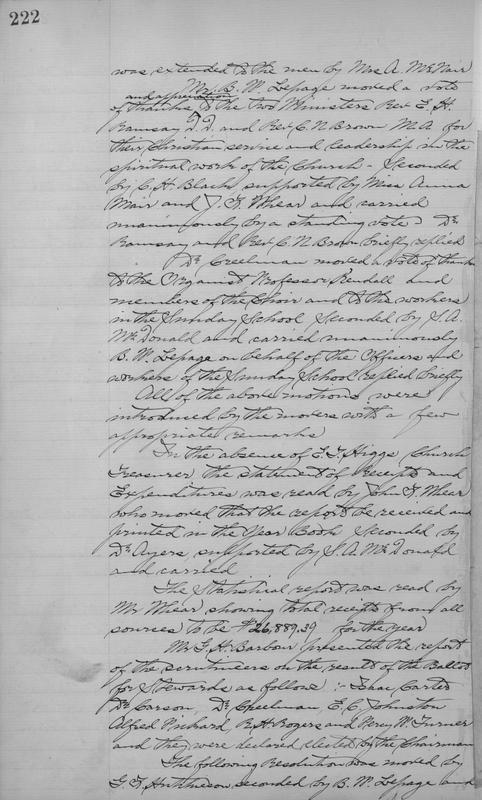 222
was extended to the men by Mrs A. McNair
Mr B. W. Lepage moved a vote
and appreciation
of thanks to the two Ministers Rev E. H.
Ramsay D.D. and Rev C. N Brown M.A. for
their Christian service and leadership in the
spiritual work of the Church - Seconded
by C. H. Black supported by Miss Anna
Mair and J. F. Whear and carried
unanimously by a standing vote - Dr
Ramsay and Rev C. N. Brown briefly replied
Dr Creelman moved a vote of thanks
to the Organist Professor Rendall and
members of the Choir and to the workers
in the Sunday School, Seconded by S. A.
McDonald and carried unanimously
B. W. Lepage on behalf of the Officers and
workers of the Sunday School replied briefly
All of the above motions were
introduced by the movers with a few
appropriate remarks
In the absence of Higgs Church
Treasurer the statement of Receipts and
Expenditures was read by John F. Whear
who moved that the report be received and
printed in the Year Book Seconded by
Dr Ayers supported by S. A. McDonald
and carried
The Statistical report was read by
Mr Whear, showing total receipts from all
sources to be $26,889.39 for the year
Mr F. H. Barbour presented the report
of the scrutineers on the result of the Ballot
for Stewards as follows :- Isaac Carter
Dr Carson, Dr Creelman, E. C. Johnston
Alfred Pickard, R. H. Rogers and Percy W. Turner
and they were declared elected by the Chairman
The following Resolution was moved by
G. F. Hutcheson seconded by B. W. Lepage and